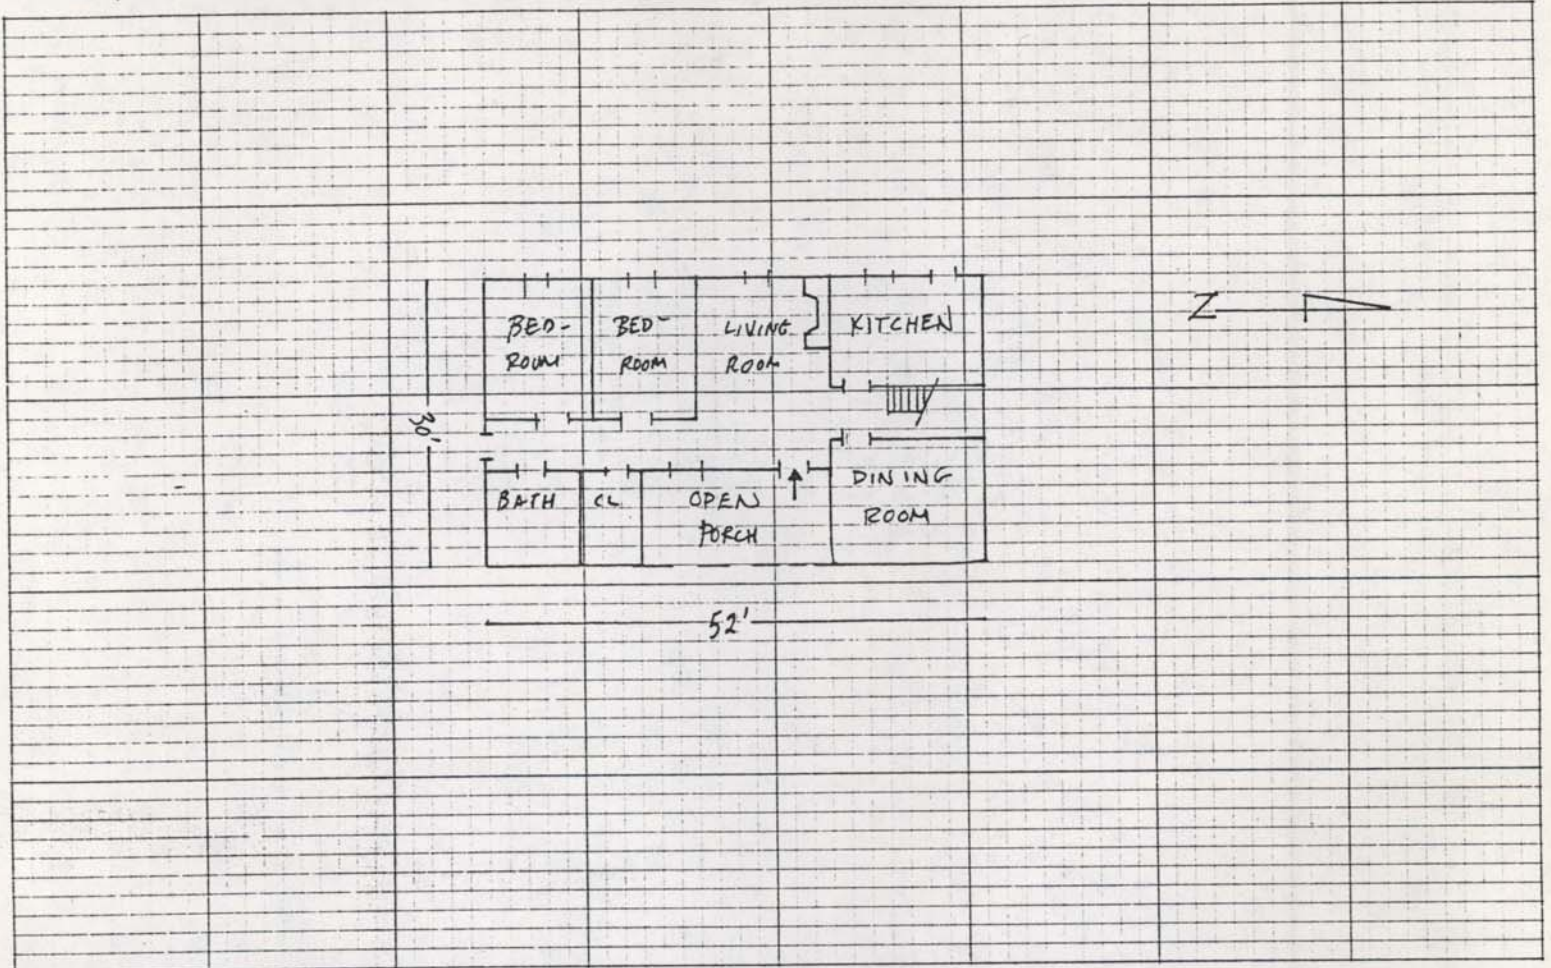 BED-
ROOM
BED-
ROOM
LIVING
ROOM
KITCHEN
30'
BATH
CL
OPEN
PORCH
DINING
ROOM
52'
N